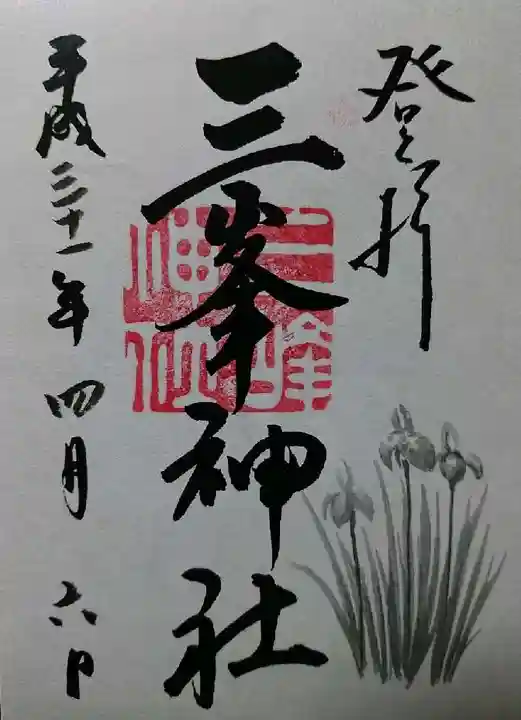 登拝
三峯神社
平成三十一年四月六日
三峯神社